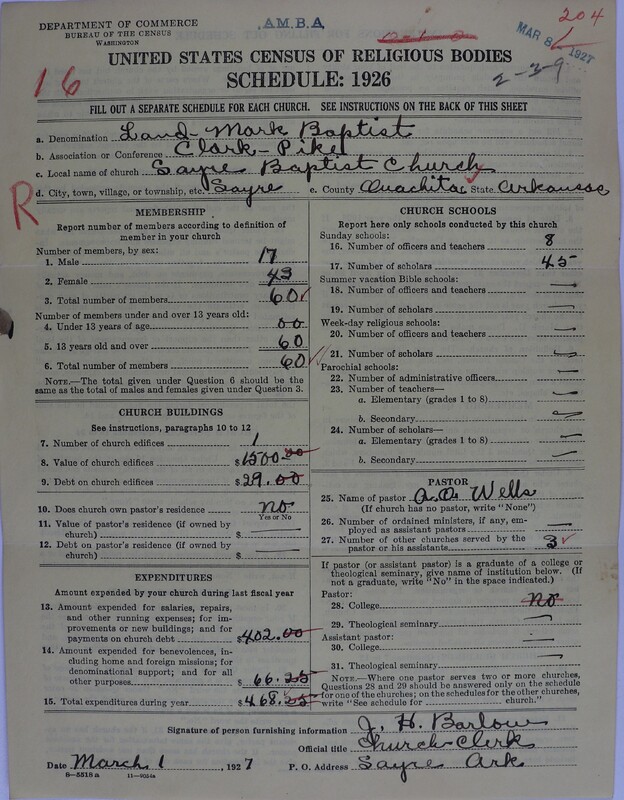 DEPARTMENT OF COMMERCE
BUREAU OF THE CENSUS
WASHINGTON
A.M.B.A
204
MAR 8 1927
UNITED STATES CENSUS OF RELIGIOUS BODIES
SCHEDULE: 1926
16
2-3-9
FILL OUT A SEPARATE SCHEDULE FOR EACH CHURCH. SEE INSTRUCTIONS ON THE BACK OF THIS SHEET
a. Denomination Land-Mark Baptist
b. Association or Conference Clark-Pike
c. Local name of church Sayre Baptist Church
d. City, town, village, or township, etc. Sayre e. County Ouachita State Arkansas
R
MEMBERSHIP
Report number of members according to definition of
member in your church
Number of members, by sex:
1. Male 17
2. Female 43
3. Total number of members 60
Number of members under and over 13 years old:
4. Under 13 years of age 00
5. 13 years old and over 60
6. Total number of members 60
NOTE.—The total given under Question 6 should be the
same as the total of males and females given under Question 3.
CHURCH BUILDINGS
See instructions, paragraphs 10 to 12
7. Number of church edifices 1
8. Value of church edifices $1500.00
9. Debt on church edifices $29.00
10. Does church own pastor's residence? no
Yes or No
11. Value of pastor's residence (if owned by
church) $ —
12. Debt on pastor's residence (if owned by
church) $ —
EXPENDITURES
Amount expended by your church during last fiscal year
13. Amount expended for salaries, repairs,
and other running expenses; for im-
provements or new buildings; and for
payments on church debt $402.00
14. Amount expended for benevolences, in-
cluding home and foreign missions; for
denominational support; and for all
other purposes $66.25
15. Total expenditures during year $468.25
CHURCH SCHOOLS
Report here only schools conducted by this church
Sunday schools:
16. Number of officers and teachers 8
17. Number of scholars 45
Summer vacation Bible schools:
18. Number of officers and teachers —
19. Number of scholars —
Week-day religious schools:
20. Number of officers and teachers —
21. Number of scholars —
Parochial schools:
22. Number of administrative officers —
23. Number of teachers—
a. Elementary (grades 1 to 8) —
b. Secondary —
24. Number of scholars—
a. Elementary (grades 1 to 8) —
b. Secondary —
PASTOR
25. Name of pastor Wells
(If church has no pastor, write "None")
26. Number of ordained ministers, if any, em-
ployed as assistant pastors —
27. Number of other churches served by the
pastor or his assistants 3
If pastor (or assistant pastor) is a graduate of a college or
theological seminary, give name of institution below. (If
not a graduate, write "No" in the space indicated.)
Pastor:
28. College no
29. Theological seminary —
Assistant pastor:
30. College —
31. Theological seminary —
NOTE.—Where one pastor serves two or more churches,
Questions 28 and 29 should be answered only on the schedule
for one of the churches; on the schedules for the other churches,
write "See schedule for church."
Signature of person furnishing information J. H. Barlow
Official title Church-Clerk
Date March 1, 1927 P. O. Address Sayre Ark
8—5518 a